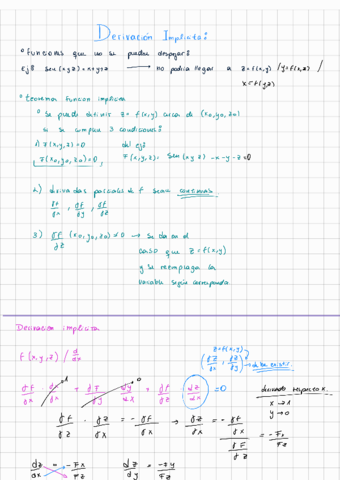 Derivación Implicita:
° Funciones que no se pueden despejar:
Ej: sen(xyz)=x+y+z ⟶ no podria llegar a z=f(x,y) / y=f(x,z) /
x=f(y,z)
° teorema funcion implicita
° Se puede definir z=f(x,y) cerca de (x0,y0,z0)
si se cumplen 3 condiciones:
1) F(x,y,z)=0 del ej:
F(x0,y0,z0)=0, F(x,y,z)= sen(xyz) -x-y-z=0
2) derivadas parciales de f sean continuas
∂f/∂x, ∂f/∂y, ∂f/∂z
3) ∂F/∂z (x0,y0,z0)≠0 → Se da en el
caso que z=f(x,y)
y se reemplaza la
variable según corresponda
Derivación implicita
z=f(x,y)
f(x,y,z) / d/dx (∂z/∂x, ∂z/∂y) debe existir
∂f/∂x dx/dx 1 + ∂F/∂y dy/dx 0 + ∂f/∂z dz/dx =0 derivando respecto x
x → 1
y → 0
∂f/∂z ∂z/∂x = -∂f/∂x → ∂z/∂x = -∂f/∂x / ∂F/∂z = -Fx/Fz
dz/dx = -Fx/Fz dz/dy = -Fy/Fz